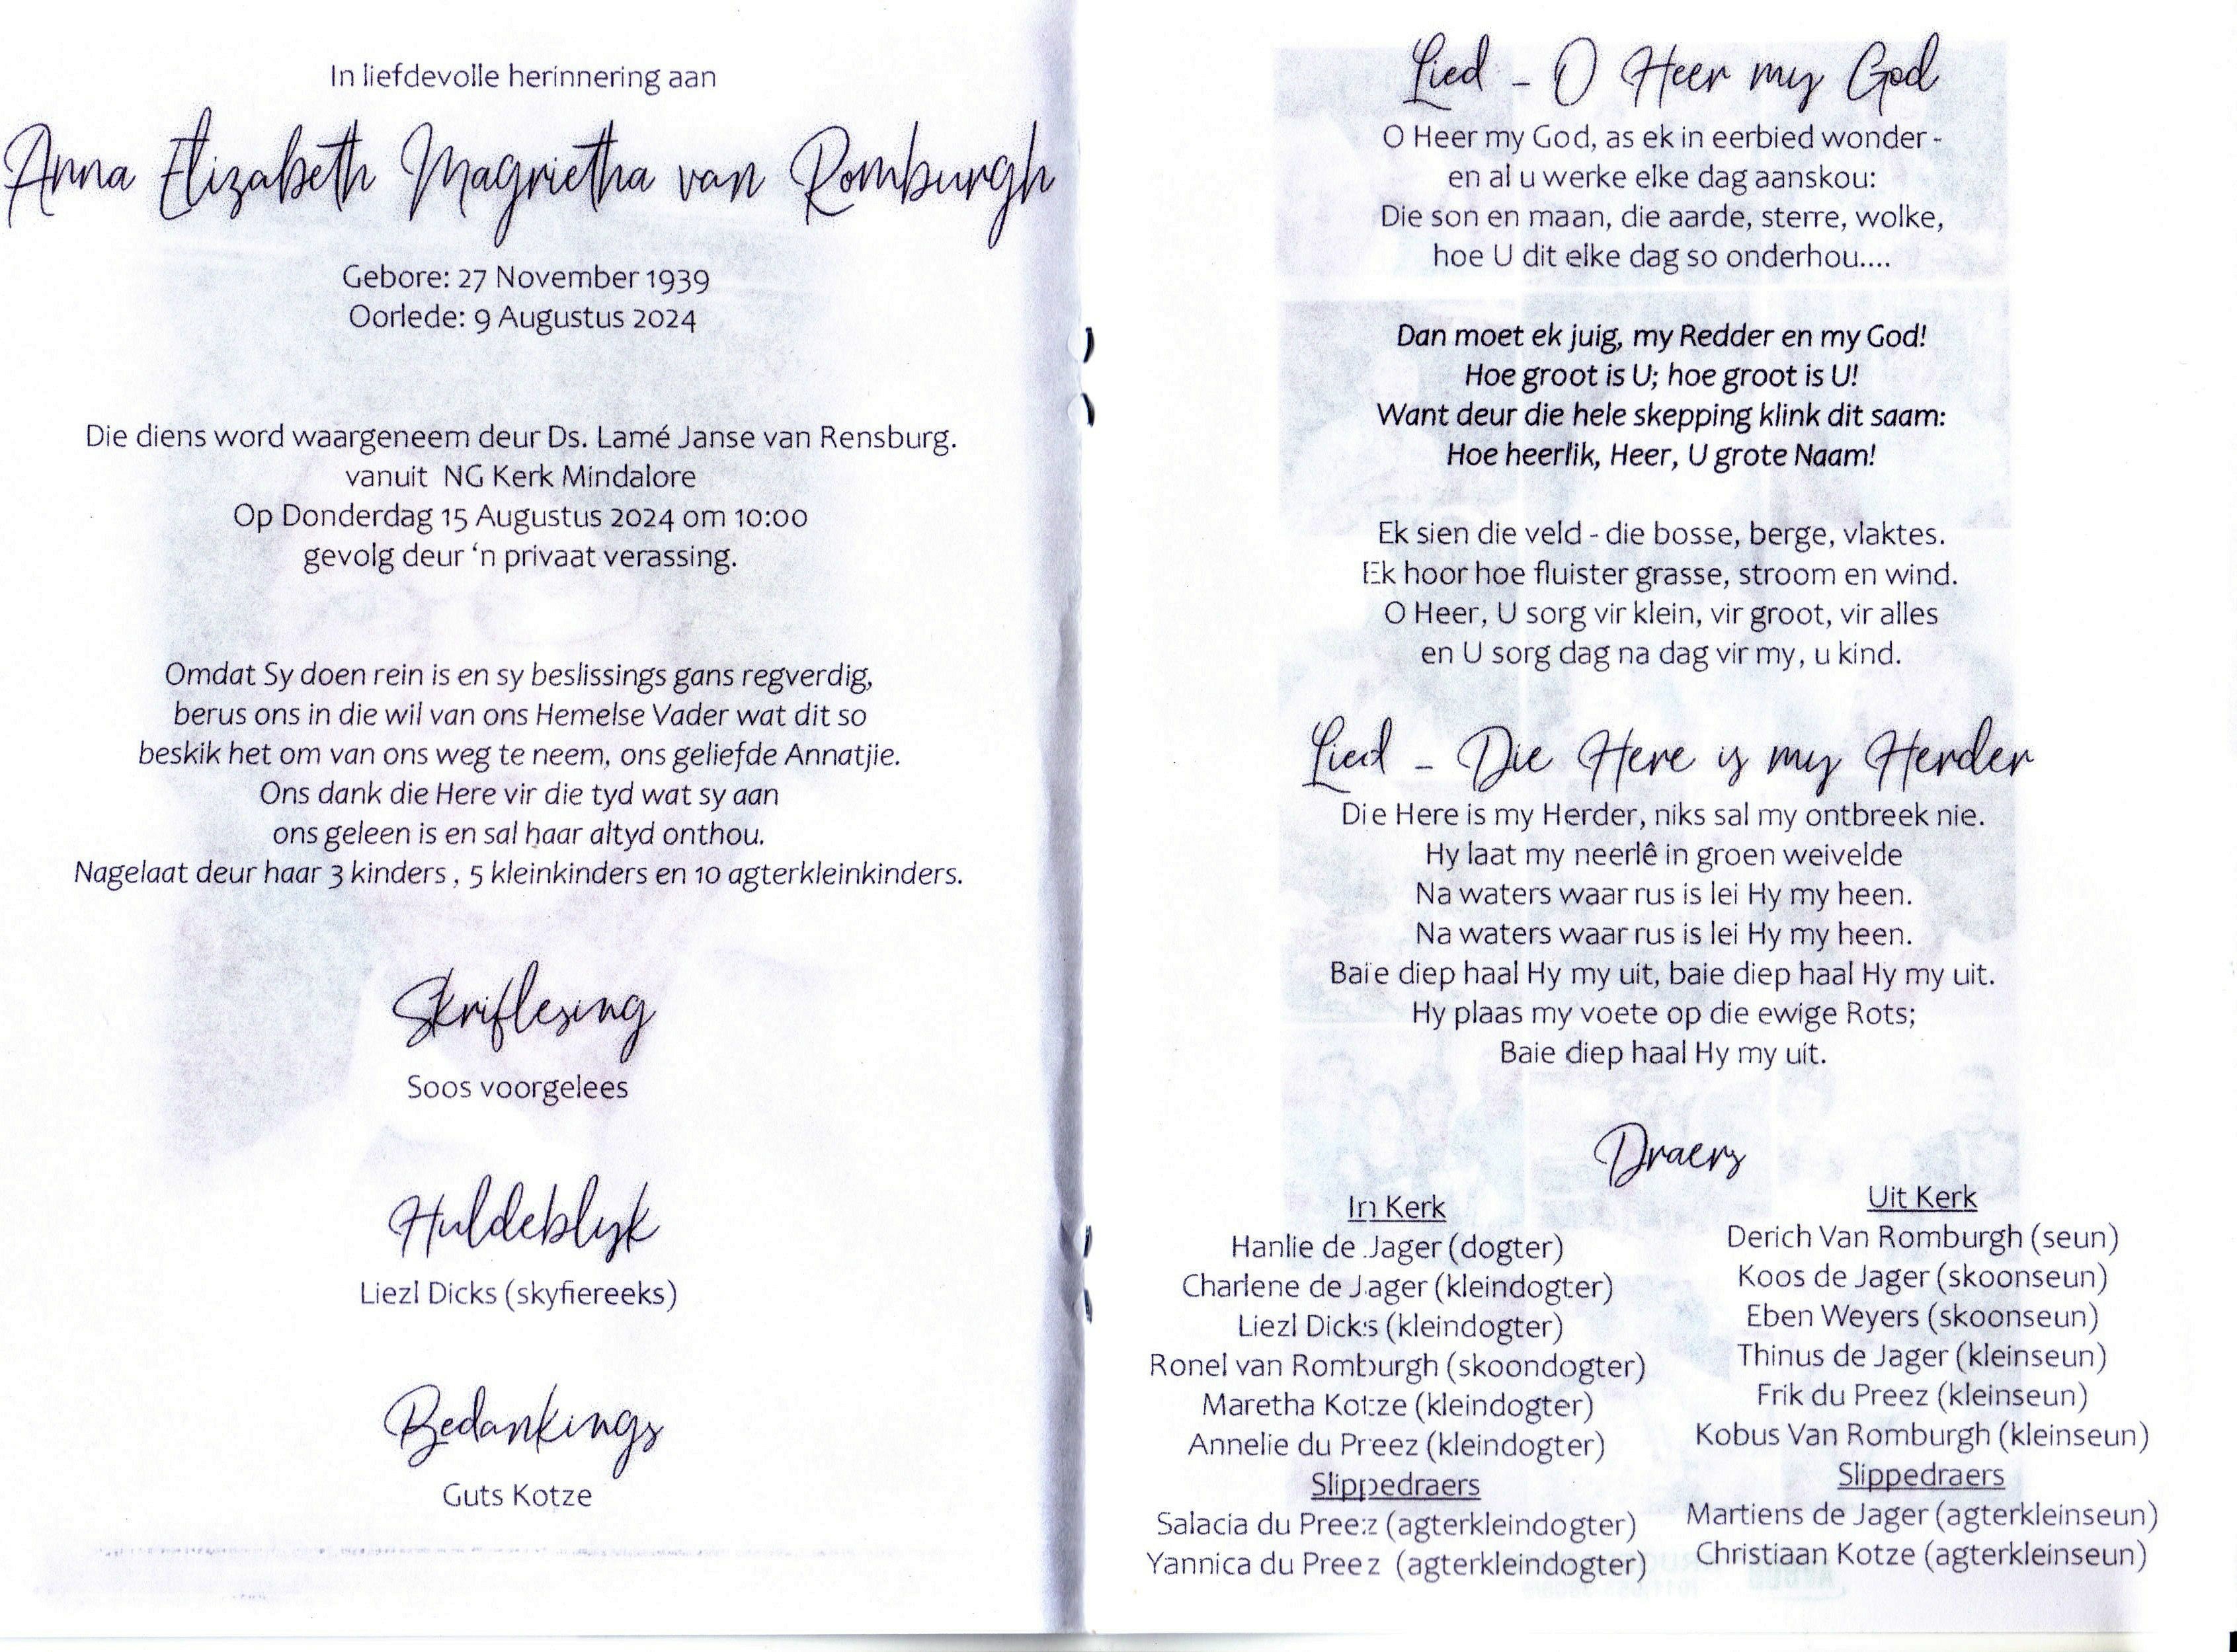 In liefdevolle herinnering aan
Anna Elizabeth Magrietha van Romburgh
Gebore: 27 November 1939
Oorlede: 9 Augustus 2024
Die diens word waargeneem deur Ds. Lamé Janse van Rensburg.
vanuit NG Kerk Mindalore
Op Donderdag 15 Augustus 2024 om 10:00
gevolg deur ‘n privaat verassing.
Omdat Sy doen rein is en sy beslissings gans regverdig,
berus ons in die wil van ons Hemelse Vader wat dit so
beskik het om van ons weg te neem, ons geliefde Annatjie.
Ons dank die Here vir die tyd wat sy aan
ons geleen is en sal haar altyd onthou.
Nagelaat deur haar 3 kinders , 5 kleinkinders en 10 agterkleinkinders.
Skriflesing
Soos voorgelees
Huldeblyk
Liezl Dicks (skyfiereeks)
Bedankings
Guts Kotze
Lied - O Heer my God
O Heer my God, as ek in eerbied wonder -
en al u werke elke dag aanskou:
Die son en maan, die aarde, sterre, wolke,
hoe U dit elke dag so onderhou....
Dan moet ek juig, my Redder en my God!
Hoe groot is U; hoe groot is U!
Want deur die hele skepping klink dit saam:
Hoe heerlik, Heer, U grote Naam!
Ek sien die veld - die bosse, berge, vlaktes.
Ek hoor hoe fluister grasse, stroom en wind.
O Heer, U sorg vir klein, vir groot, vir alles
en U sorg dag na dag vir my, u kind.
Lied - Die Here is my Herder
Die Here is my Herder, niks sal my ontbreek nie.
Hy laat my neerlê in groen weivelde
Na waters waar rus is lei Hy my heen.
Na waters waar rus is lei Hy my heen.
Baie diep haal Hy my uit, baie diep haal Hy my uit.
Hy plaas my voete op die ewige Rots;
Baie diep haal Hy my uit.
Draers
In Kerk
Hanlie de Jager (dogter)
Charlene de Jager (kleindogter)
Liezl Dicks (kleindogter)
Ronel van Romburgh (skoondogter)
Maretha Kotze (kleindogter)
Annelie du Preez (kleindogter)
Slippedraers
Salacia du Preez (agterkleindogter)
Yannica du Preez (agterkleindogter)
Uit Kerk
Derich Van Romburgh (seun)
Koos de Jager (skoonseun)
Eben Weyers (skoonseun)
Thinus de Jager (kleinseun)
Frik du Preez (kleinseun)
Kobus Van Romburgh (kleinseun)
Slippedraers
Martiens de Jager (agterkleinseun)
Christiaan Kotze (agterkleinseun)